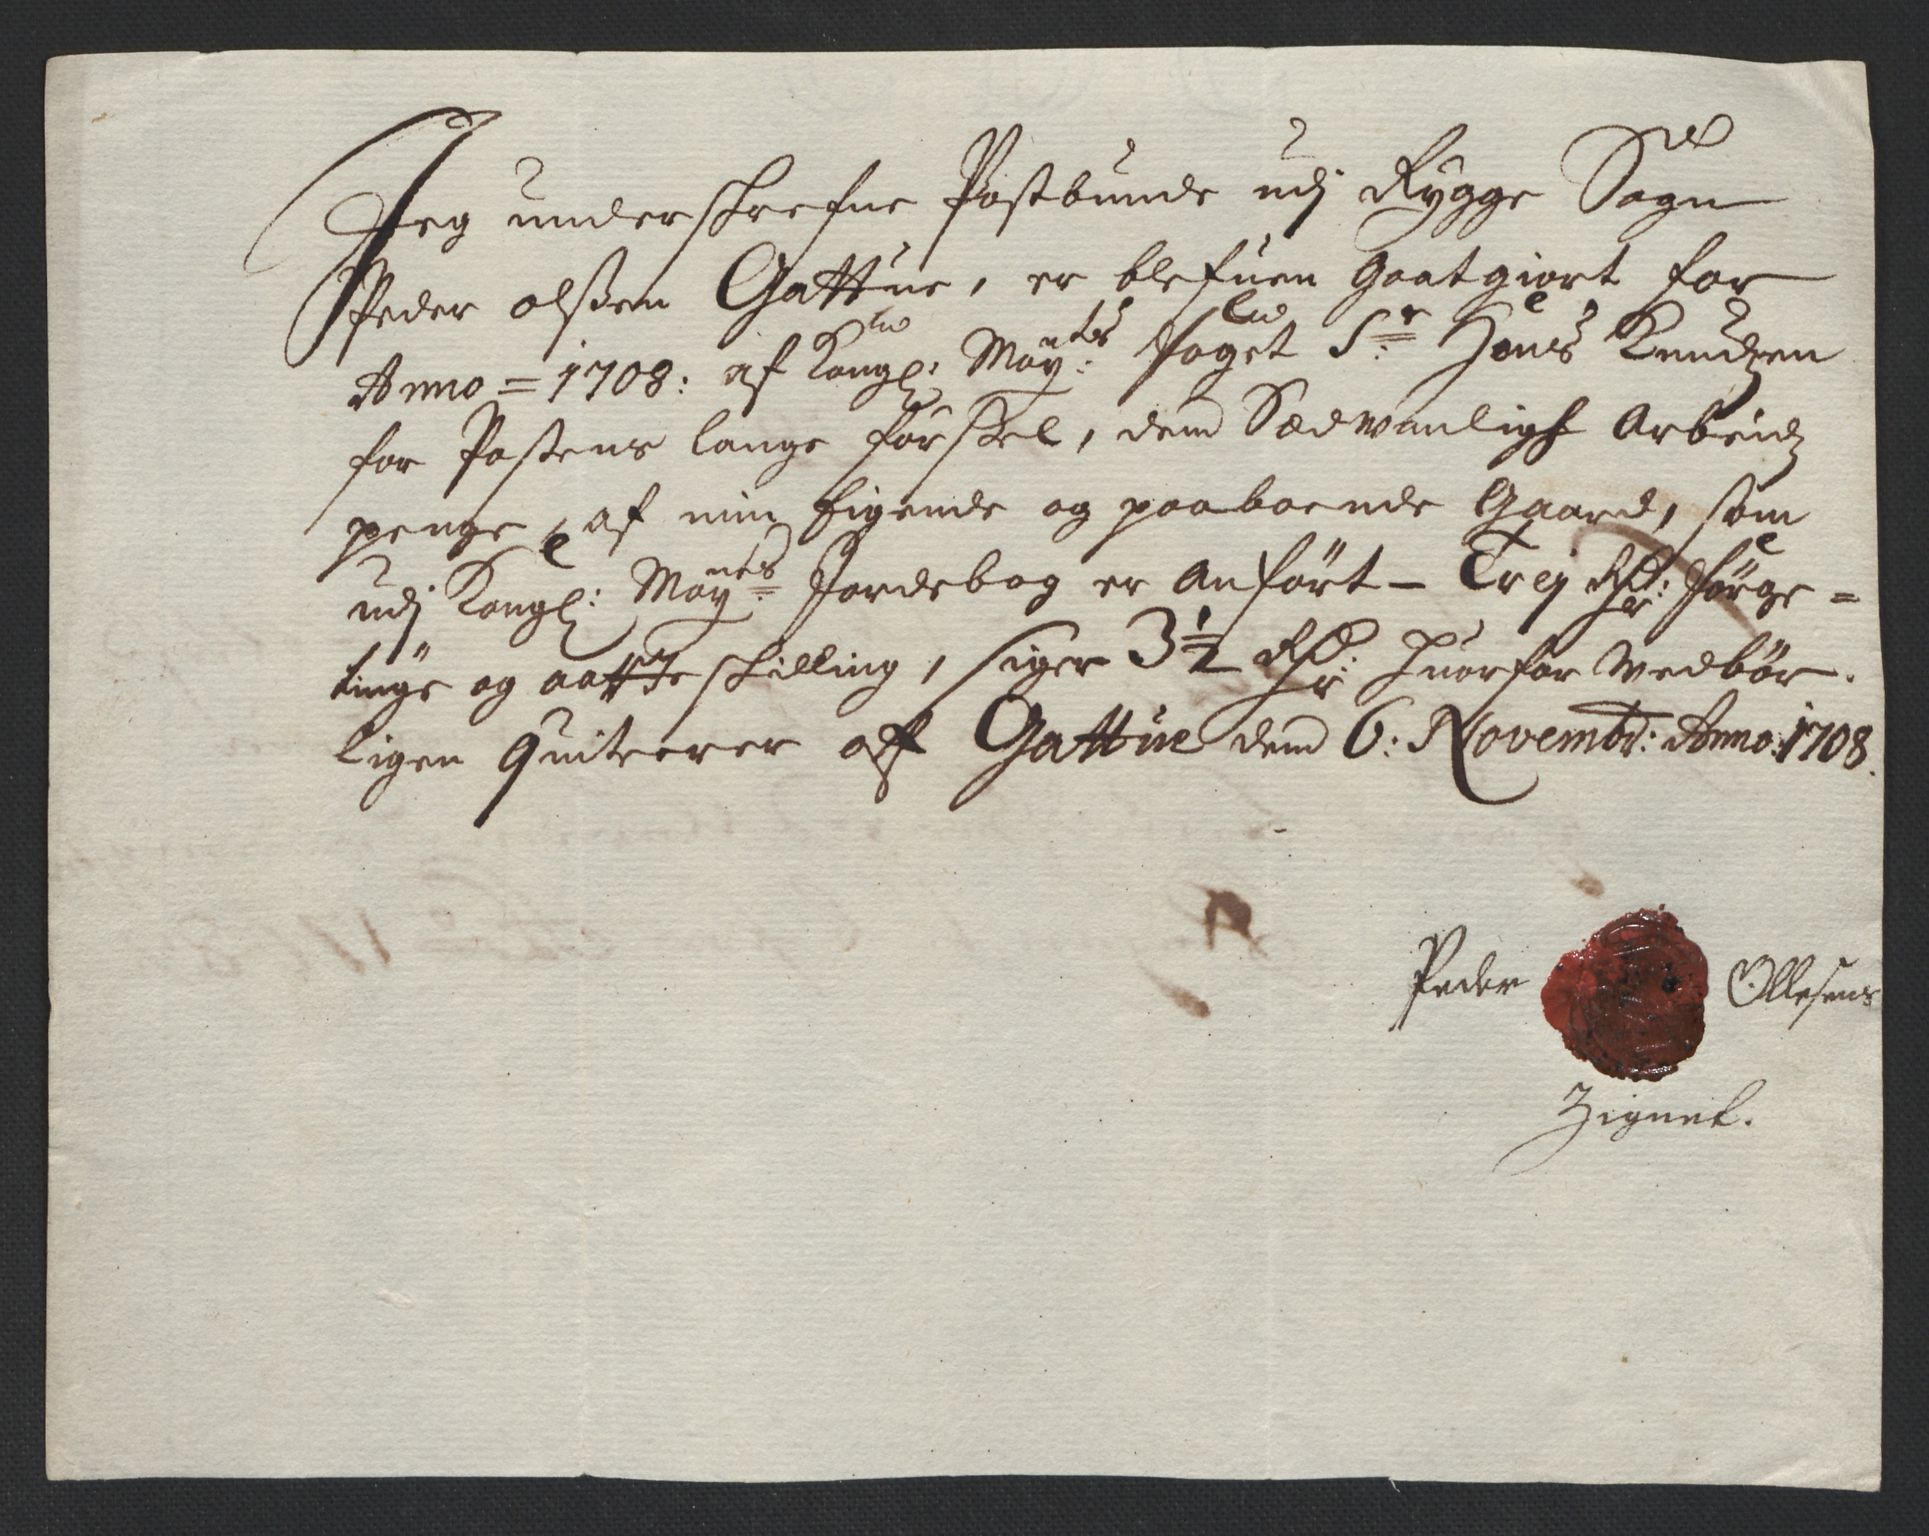 Jeg underskrefne Postbunde udj Rygge Sogn
Peder olßen Gattue, er blefuen Godtgiort for
Anno = 1708: af Kongl: May:tes foget Sr: Hans Knudzen
for Postens lange förßel, dend Sædwanlige Arbeidz
penge, af min Eigende og paaboende Gaard, som
udj Kongl: May:tes Jordebog er Anfört - Trej Rdr: förge=
tinge og aatte skilling, siger 3½ Rdr: huorfor wedbör.
ligen quiterer aff Gattue dend 6: Novembr: Anno: 1708.
Peder Ollesens
Zignet.